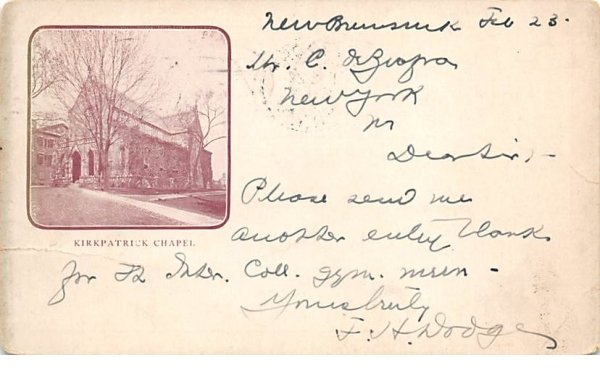 New Brunswick Feb 23.
Mr. C.
New York
Dear Sir; -
Please send me
another entry blank
for Inter. Coll. gym.
Yours truly
F. H. Dodge
KIRKPATRICK CHAPEL